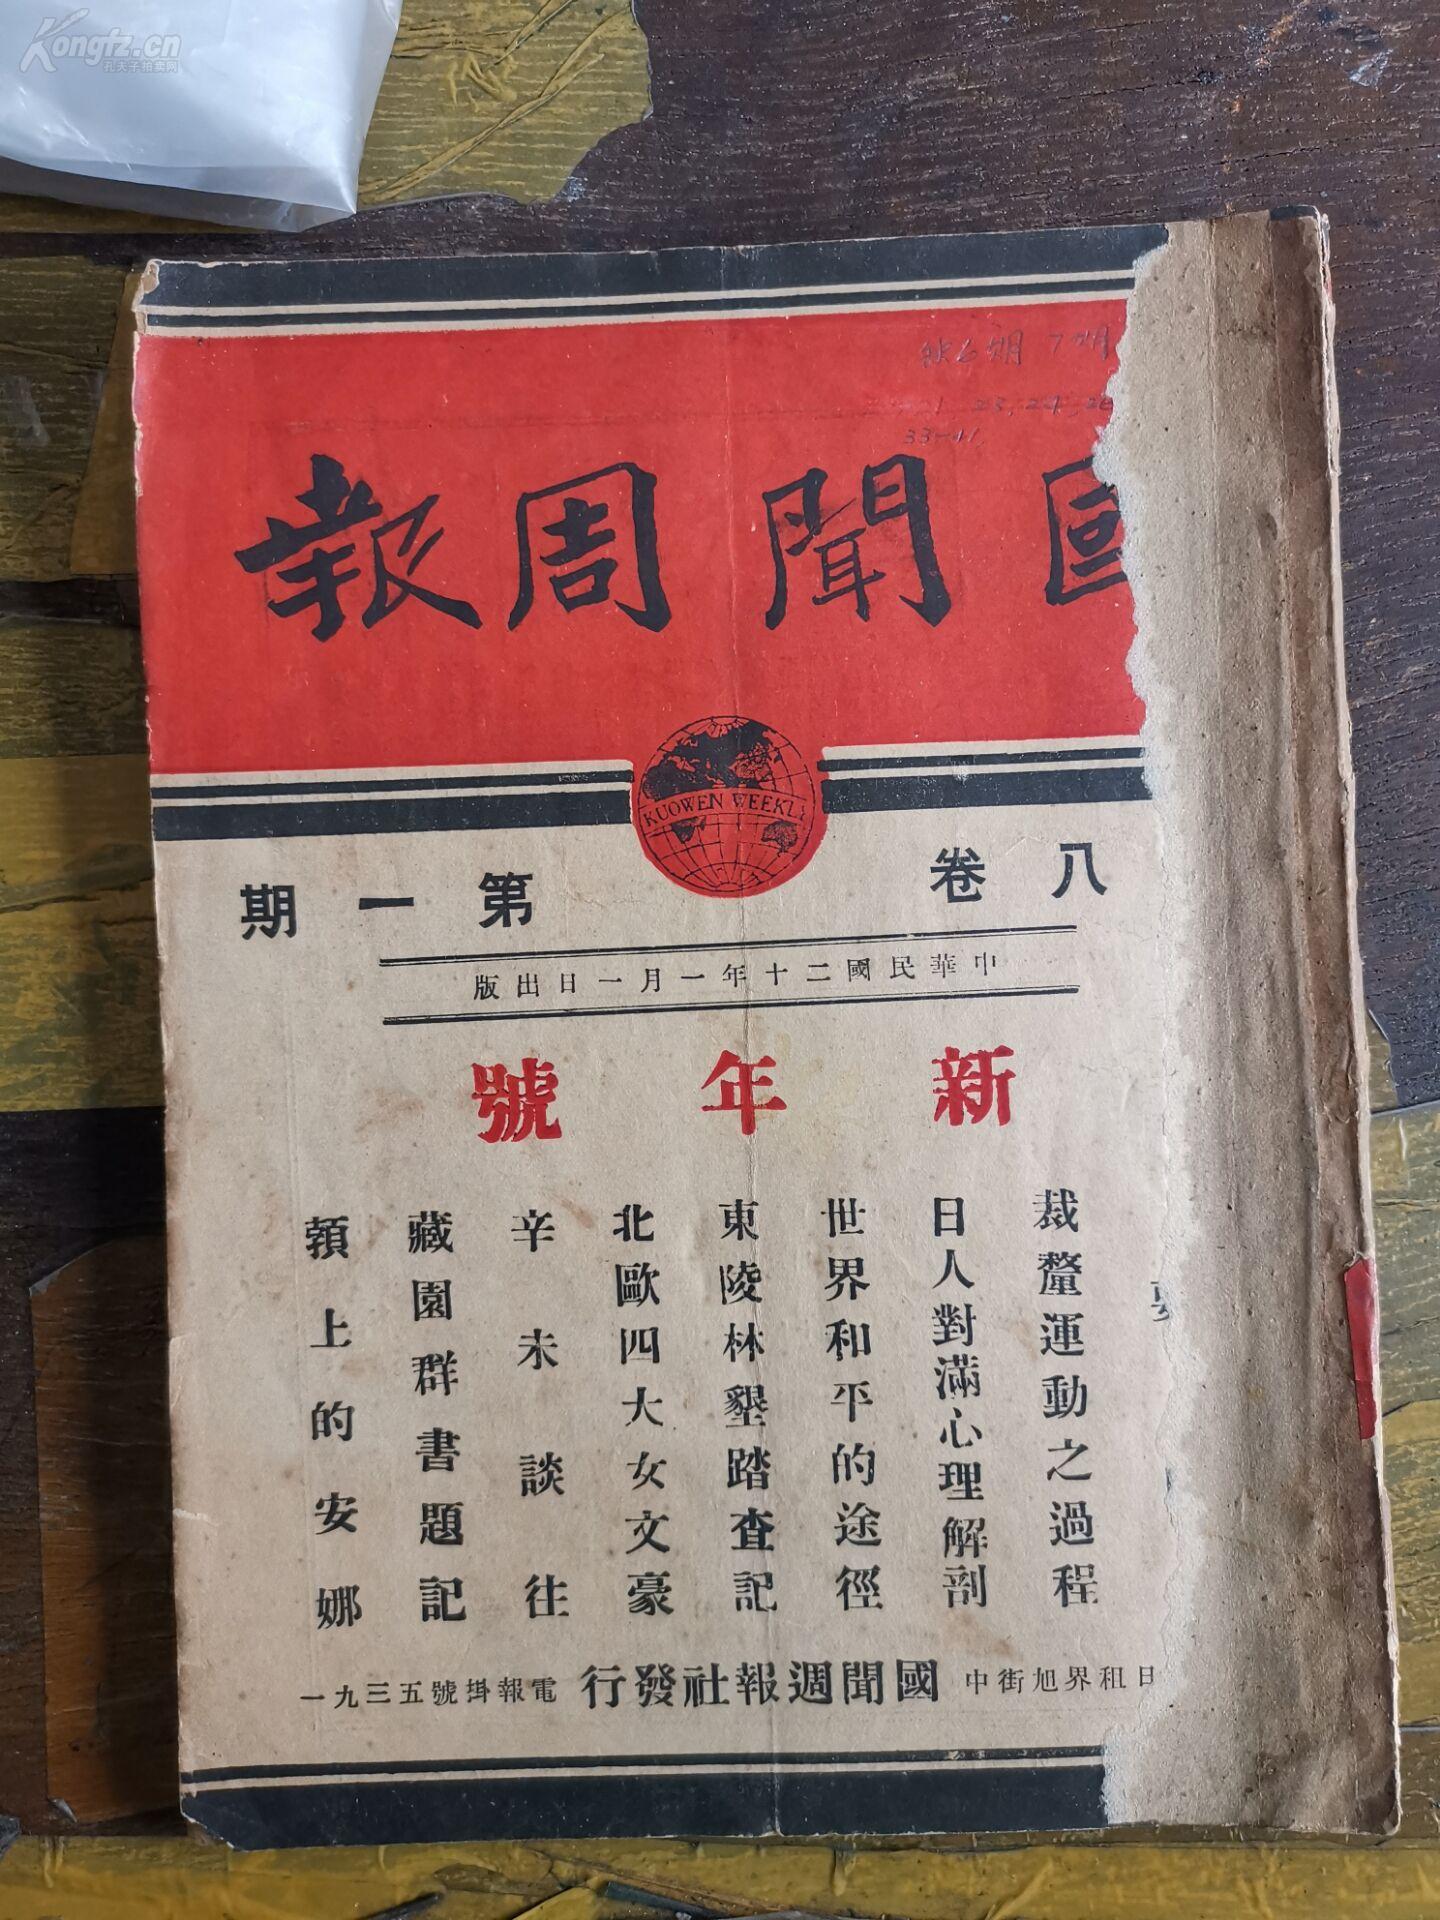 Kongfz.cn
孔夫子拍卖网
缺6期 7期
23, 24, 26
33-41,
國聞周報
KUOWEN WEEKLY
八卷 第一期
中華民國二十年一月一日出版
新年號
裁釐運動之過程
日人對滿心理解剖
世界和平的途徑
東陵林墾踏查記
北歐四大女文豪
辛未談往
藏園群書題記
顇上的安娜
日租界旭街中 國聞週報社發行 電報掛號五三九一